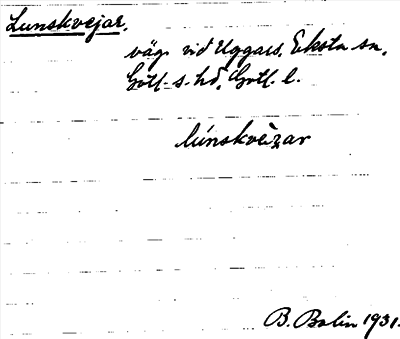 Lunskvejar.
väg vid Uggars, Eksta sn.
Gotl. s. hd, Gotl. l.
lúnskvèi̯ar
B. Bolin 1931.